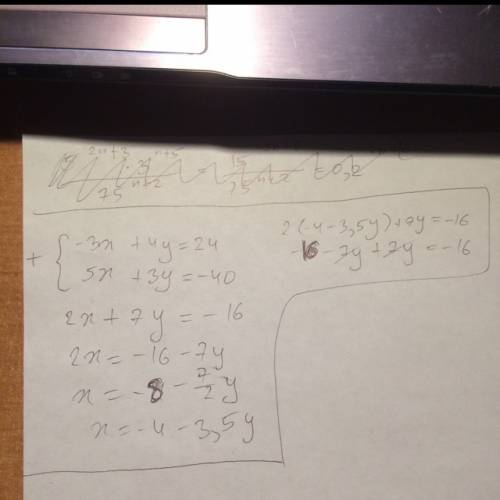 -3x + 4y = 24
+ { 5x + 3y = -40
2x + 7y = -16
2x = -16 - 7y
x = -8 - 7/2 y
x = -4 - 3,5y
2(-4-3,5y)+7y=-16
-16-7y+7y=-16